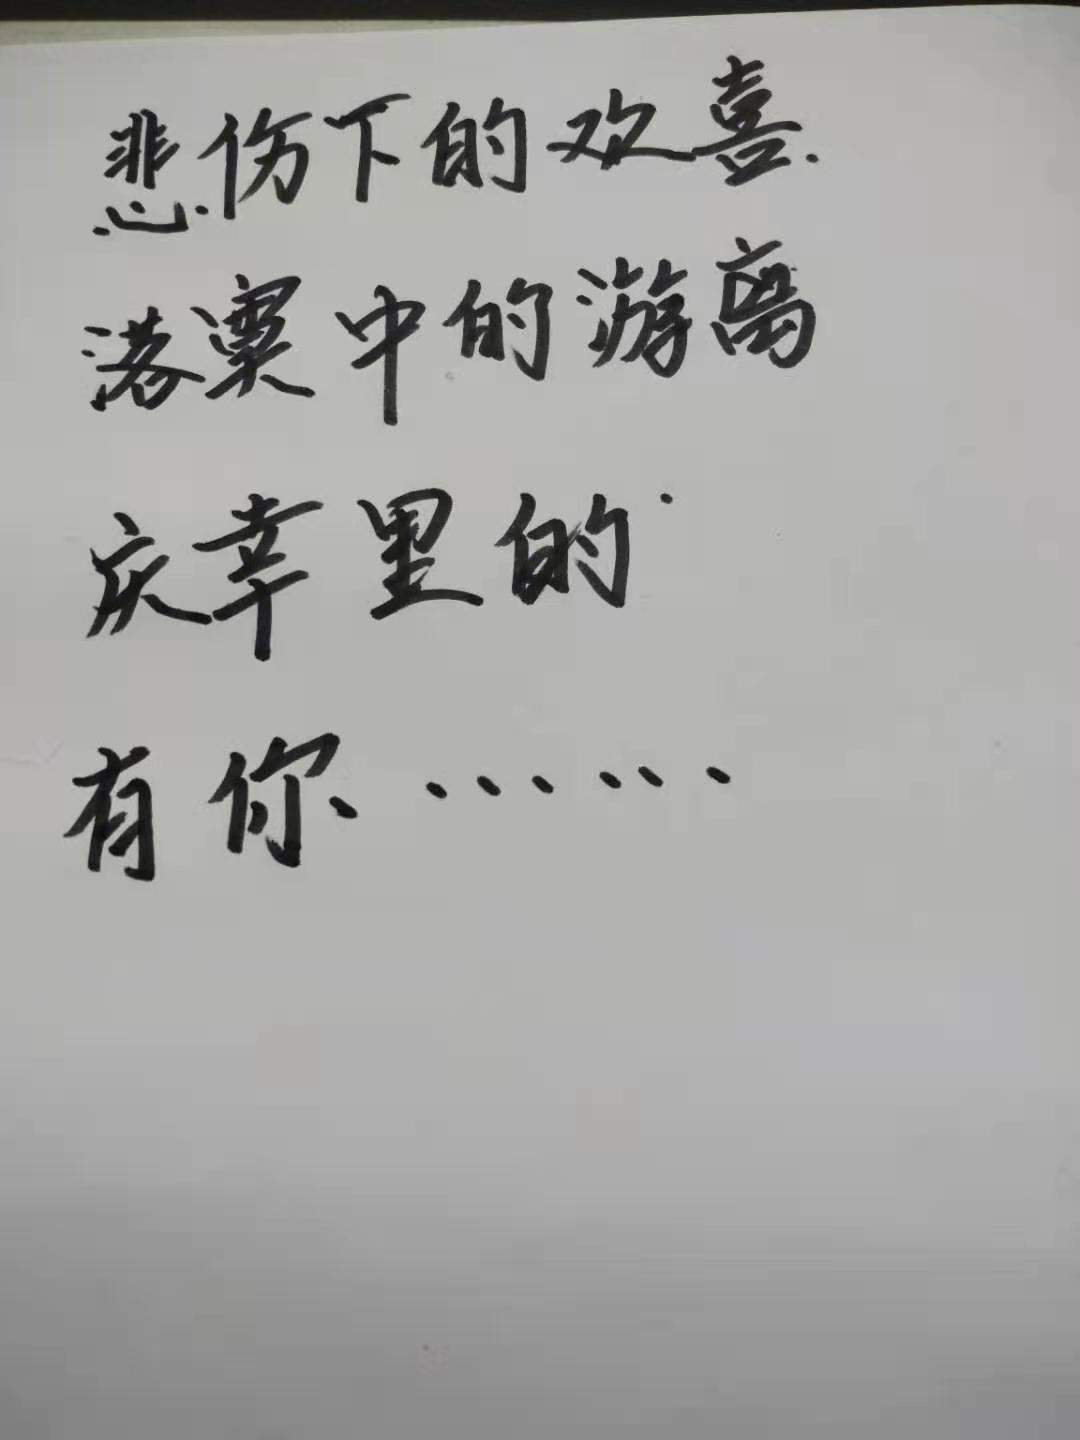 悲伤下的欢喜.
落寞中的游离
庆幸里的
有你、……